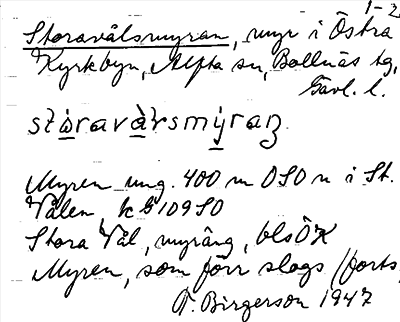 1-2
Storavålsmyran, myr i Östra
Kyrkbyn, Alfta sn, Bollnäs tg,
Gävl. l.
stòravàrsmỳraṉ.
Myren ung. 400 m OSO n i St.
Vålen, k bl 109 SO
Stora Vål, myräng, bls ÖK
Myren, som förr slogs (forts.
T. Birgerson 1947